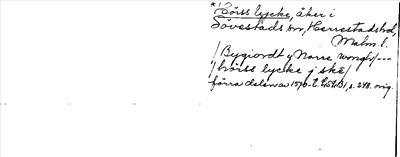 *Böiss lycke, åker i
Sövestads sn, Herrestads hd,
Malm. l.
/ Bygiordt y Norre wongh/ ---
/ böiss lycke j skē/
förra delen av 1570-t. s. 248. orig.